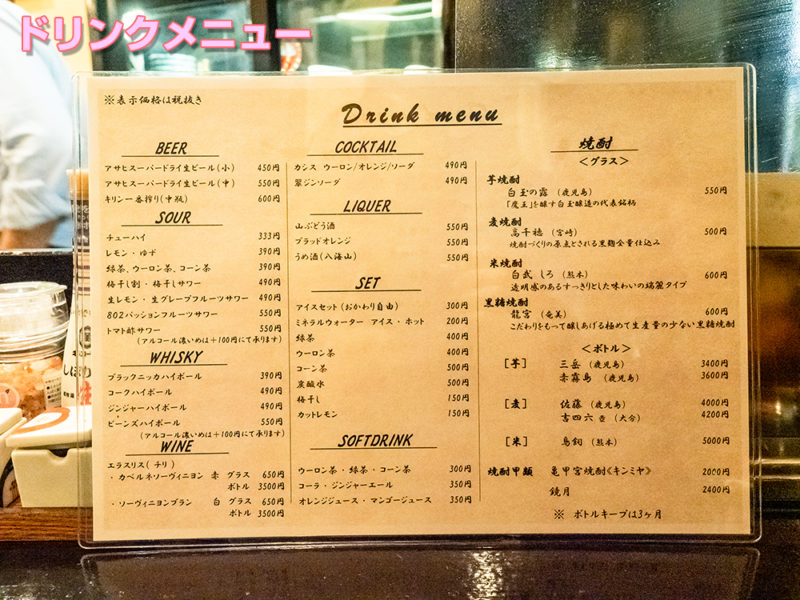 ドリンクメニュー
※表示価格は税抜き
Drink menu
BEER
アサヒスーパードライ生ビール(小) 450円
アサヒスーパードライ生ビール(中) 550円
キリン一番搾り(中瓶) 600円
SOUR
チューハイ 333円
レモン・ゆず 390円
緑茶、ウーロン茶、コーン茶 390円
梅干し割・梅干しサワー 490円
生レモン・生グレープフルーツサワー 490円
802パッションフルーツサワー 550円
トマト酢サワー 550円
(アルコール濃いめは+100円にて承ります)
WHISKY
ブラックニッカハイボール 390円
コークハイボール 490円
ジンジャーハイボール 490円
ビーンズハイボール 550円
(アルコール濃いめは+100円にて承ります)
WINE
エラスリス(チリ)
・カベルネソーヴィニヨン 赤 グラス 650円
ボトル 3500円
・ソーヴィニヨンブラン 白 グラス 650円
ボトル 3500円
COCKTAIL
カシス ウーロン/オレンジ/ソーダ 490円
翠ジンソーダ 490円
LIQUER
山ぶどう酒 550円
ブラッドオレンジ 550円
うめ酒(八海山) 550円
SET
アイスセット(おかわり自由) 300円
ミネラルウォーター アイス・ホット 200円
緑茶 400円
ウーロン茶 400円
コーン茶 500円
炭酸水 400円
梅干し 150円
カットレモン 150円
SOFTDRINK
ウーロン茶・緑茶・コーン茶 300円
コーラ・ジンジャーエール 350円
オレンジジュース・マンゴージュース 350円
焼酎
<グラス>
芋焼酎
白玉の露(鹿児島) 550円
「魔王」を醸す白玉醸造の代表銘柄
麦焼酎
高千穂(宮崎) 500円
焼酎づくりの原点とされる黒麹全量仕込み
米焼酎
白武 しろ(熊本) 600円
透明感のあるすっきりとした味わいの端麗タイプ
黒糖焼酎
龍宮(奄美) 600円
こだわりをもって醸しあげる極めて生産量の少ない黒糖焼酎
<ボトル>
[芋] 三岳(鹿児島) 3400円
赤霧島(鹿児島) 3600円
[麦] 佐藤(鹿児島) 4000円
吉四六 壺(大分) 4200円
[米] 鳥飼(熊本) 5000円
焼酎甲類 亀甲宮焼酎《キンミヤ》 2000円
鏡月 2400円
※ ボトルキープは3ヶ月